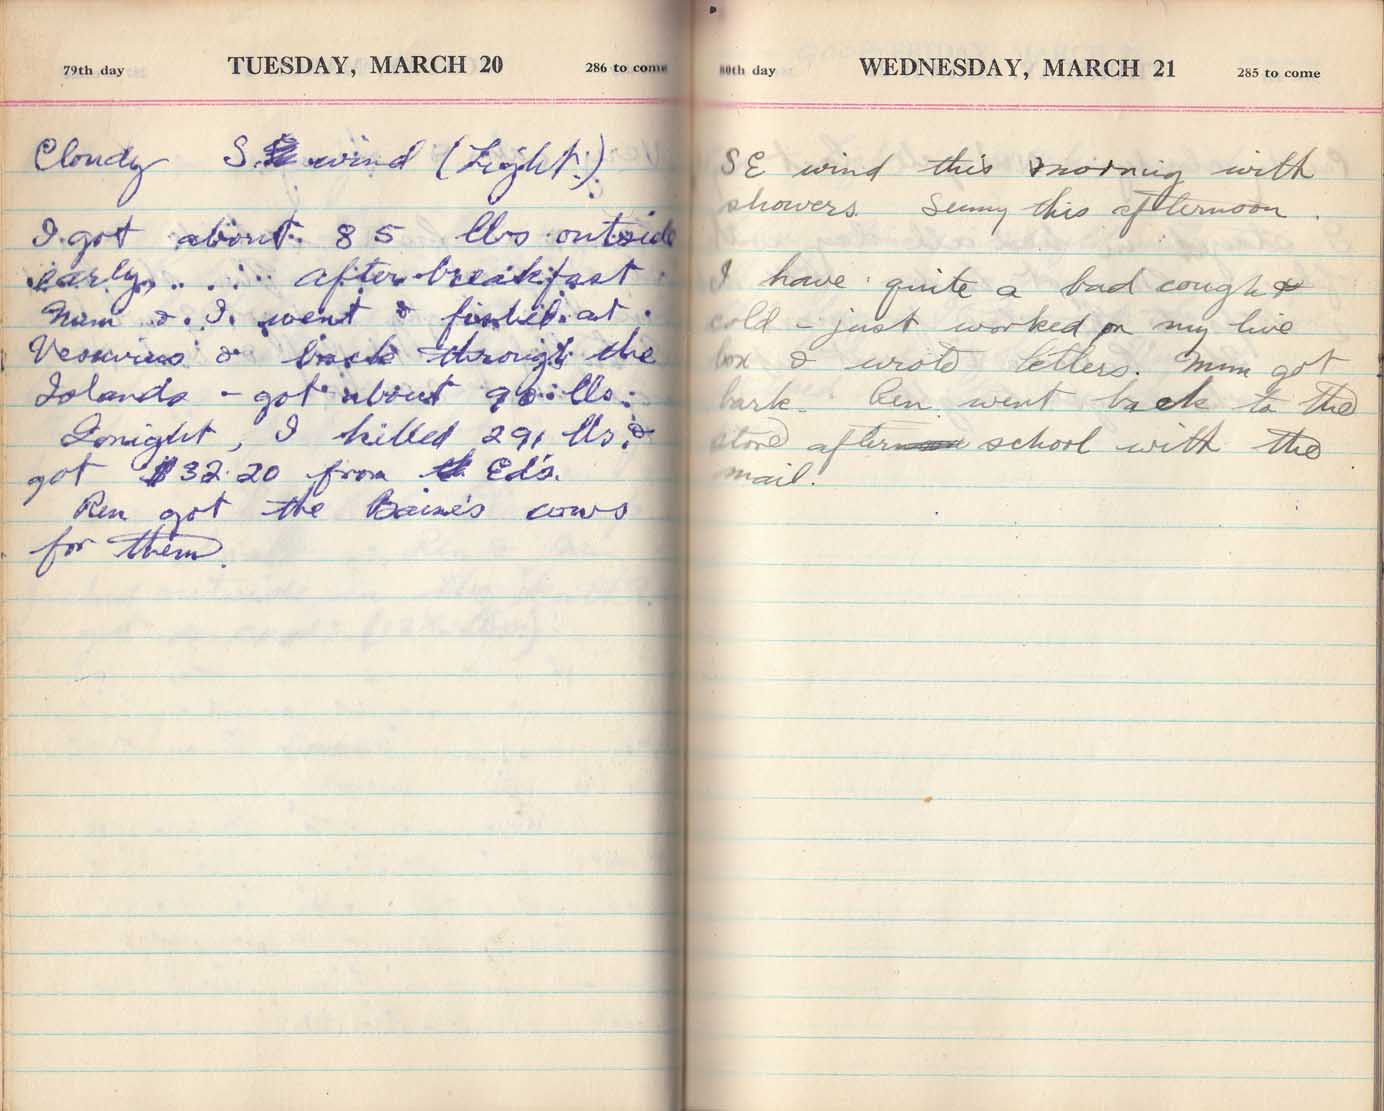 79th day TUESDAY, MARCH 20 286 to come
Cloudy S. wind (Light.)
I got about 85 lbs outside
early. after breakfast
Mum & I went & fished at
Vesuvius & back through the
Islands - got about lbs.
Tonight, I killed 291 lbs &
got $32.20 from Ed's.
Ren got the Baines cows
for them.
80th day WEDNESDAY, MARCH 21 285 to come
SE wind this morning with
showers. Sunny this afternoon.
I have quite a bad cough &
cold - just worked on my live
box & wrote letters. Mum got
bark. Ren went back to the
store after school with the
mail.